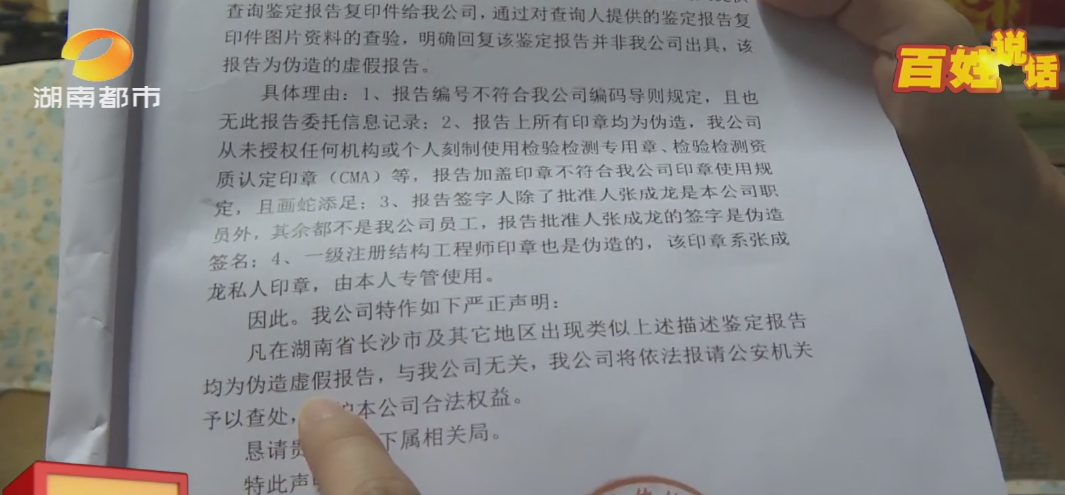 查询鉴定报告复印件给我公司，通过对查询人提供的鉴定报告复
印件图片资料的查验，明确回复该鉴定报告并非我公司出具，该
报告为伪造的虚假报告。
具体理由：1、报告编号不符合我公司编码导则规定，且也
无此报告委托信息记录；2、报告上所有印章均为伪造，我公司
从未授权任何机构或个人刻制使用检验检测专用章、检验检测资
质认定印章（CMA）等，报告加盖印章不符合我公司印章使用规
定，且画蛇添足；3、报告签字人除了批准人张成龙是本公司职
员外，其余都不是我公司员工，报告批准人张成龙的签字是伪造
签名；4、一级注册结构工程师印章也是伪造的，该印章系张成
龙私人印章，由本人专管使用。
因此。我公司特作如下严正声明：
凡在湖南省长沙市及其它地区出现类似上述描述鉴定报告
均为伪造虚假报告，与我公司无关，我公司将依法报请公安机关
予以查处，本公司合法权益。
恳请贵下属相关局。
特此声
湖南都市
百姓说话